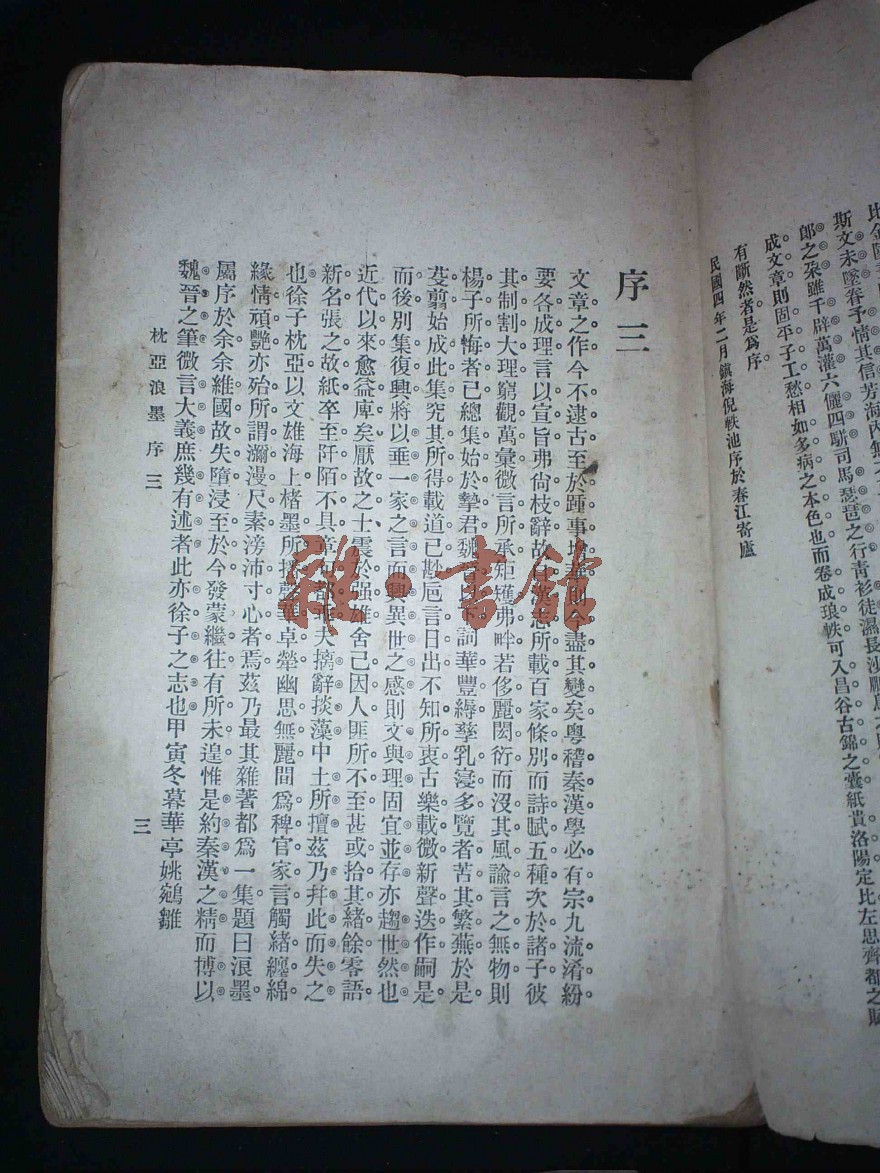 斯文未墜眷予情其信芳海內無
郎之朶雖千辟萬灌六儷四駢司馬琵琶之行靑衫徒濕長沙鵩鳥之
成文章則固平子工愁相如多病之本色也而卷成琅軼可入昌谷古錦之囊紙貴洛陽定比左思齊都之賦
有斷然者是爲序
民國四年二月鎮海倪軼池序於春江寄廬
序三
文章之作今不逮古至於踵事增華則今盡其變矣粵稽秦漢學必有宗九流淆紛
要各成理言以宣旨弗尙枝辭故台漢志所載百家條別而詩賦五種次於諸子彼
其制割大理窮觀萬彙微言所承矩矱弗畔若侈麗閎衍而沒其風諭言之無物則
楊子所悔者已總集始於摯君魏晉以下詞華豐縟孳乳寖多覽者苦其繁蕪於是
芟翦始成此集究其所得載道已尠巵言日出不知所衷古樂載微新聲迭作嗣是
而後別集復興將以垂一家之言而興異世之感則文與理固宜並存亦趨世然也
近代以來愈益庳矣厭故之士震於强雄舍己因人匪所不至甚或拾其緖餘零語
新名張之故紙卒至阡陌不具章句都乖夫摛辭掞藻中土所擅茲乃幷此而失之
也徐子枕亞以文雄海上楮墨所播聲華卓犖幽思無麗間爲稗官家言觸緖纏綿
緣情頑艷亦殆所謂瀰漫尺素滂沛寸心者焉茲乃最其雜著都爲一集題曰浪墨
屬序於余余維國故失墮浸至於今發蒙繼往有所未遑惟是約秦漢之精而博以
魏晉之筆微言大義庶幾有述者此亦徐子之志也甲寅冬暮華亭姚鵷雛
枕亞浪墨 序三
三
雜·書館